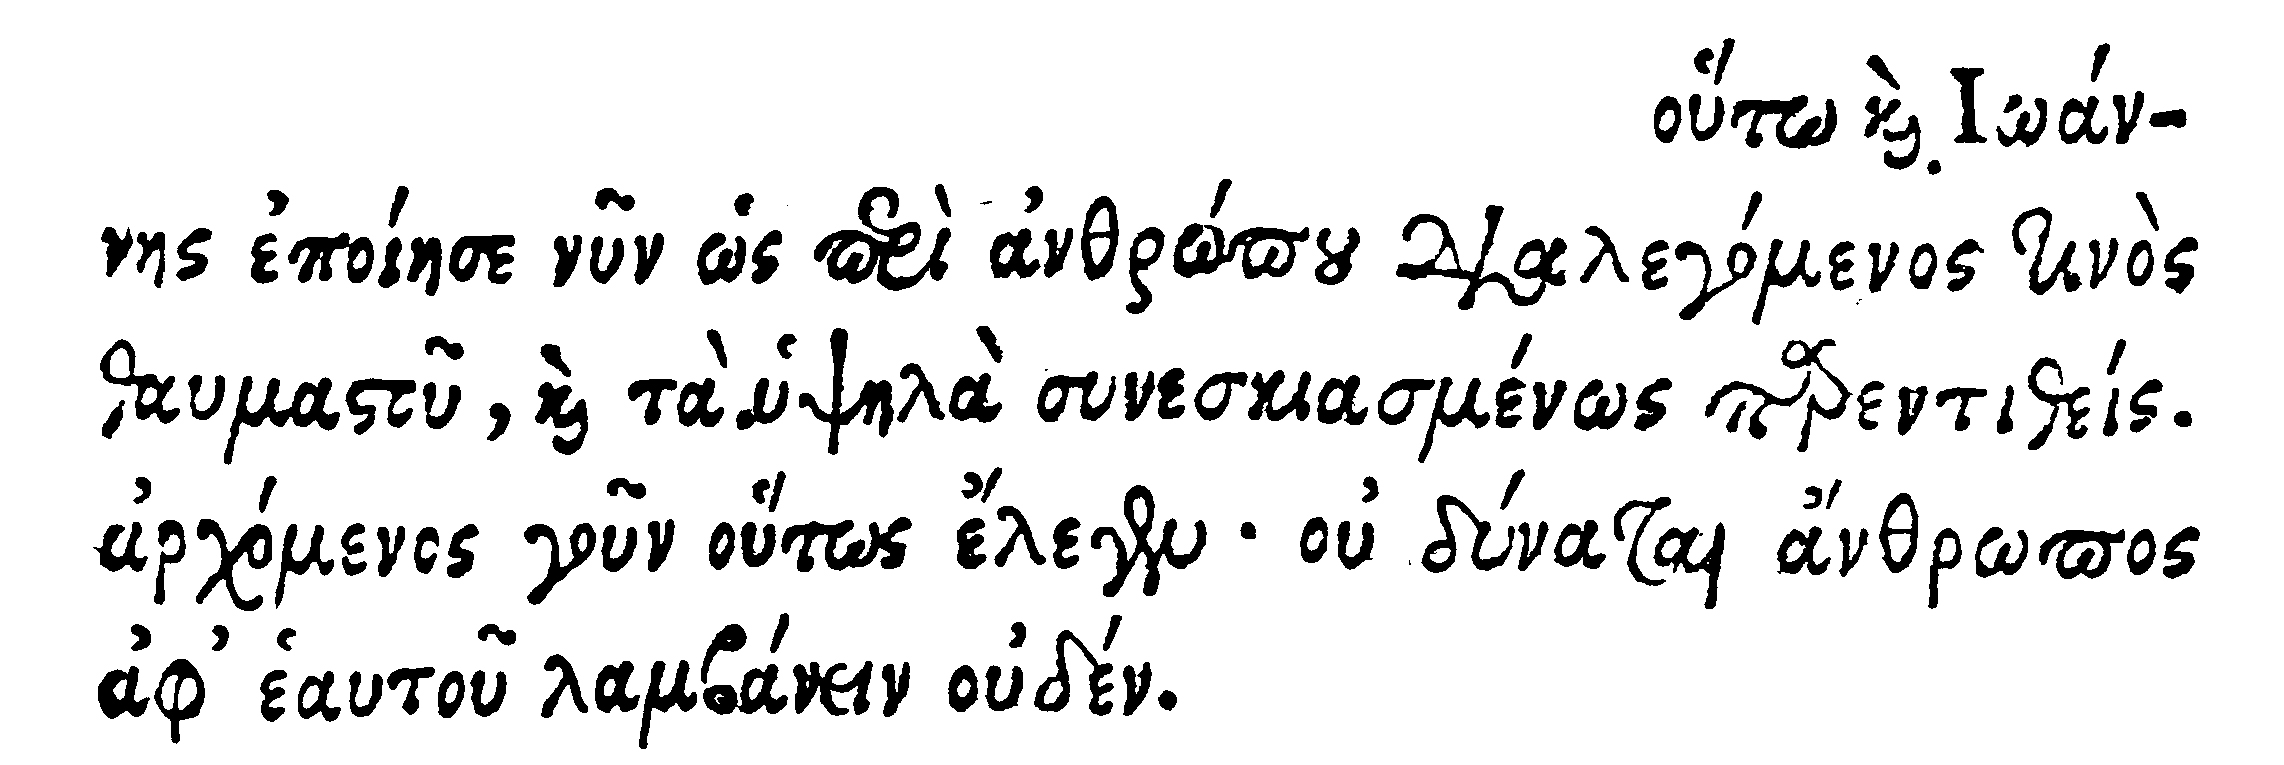 οὕτω καὶ Ἰωάν-
νης ἐποίησε νῦν ὡς περὶ ἀνθρώπου διαλεγόμενος τινὸς
θαυμαστοῦ, καὶ τὰ ὑψηλὰ συνεσκιασμένως παρεντιθείς.
ἀρχόμενος γοῦν οὕτως ἔλεγεν · οὐ δύναται ἄνθρωπος
ἀφ’ ἑαυτοῦ λαμβάνειν οὐδέν.